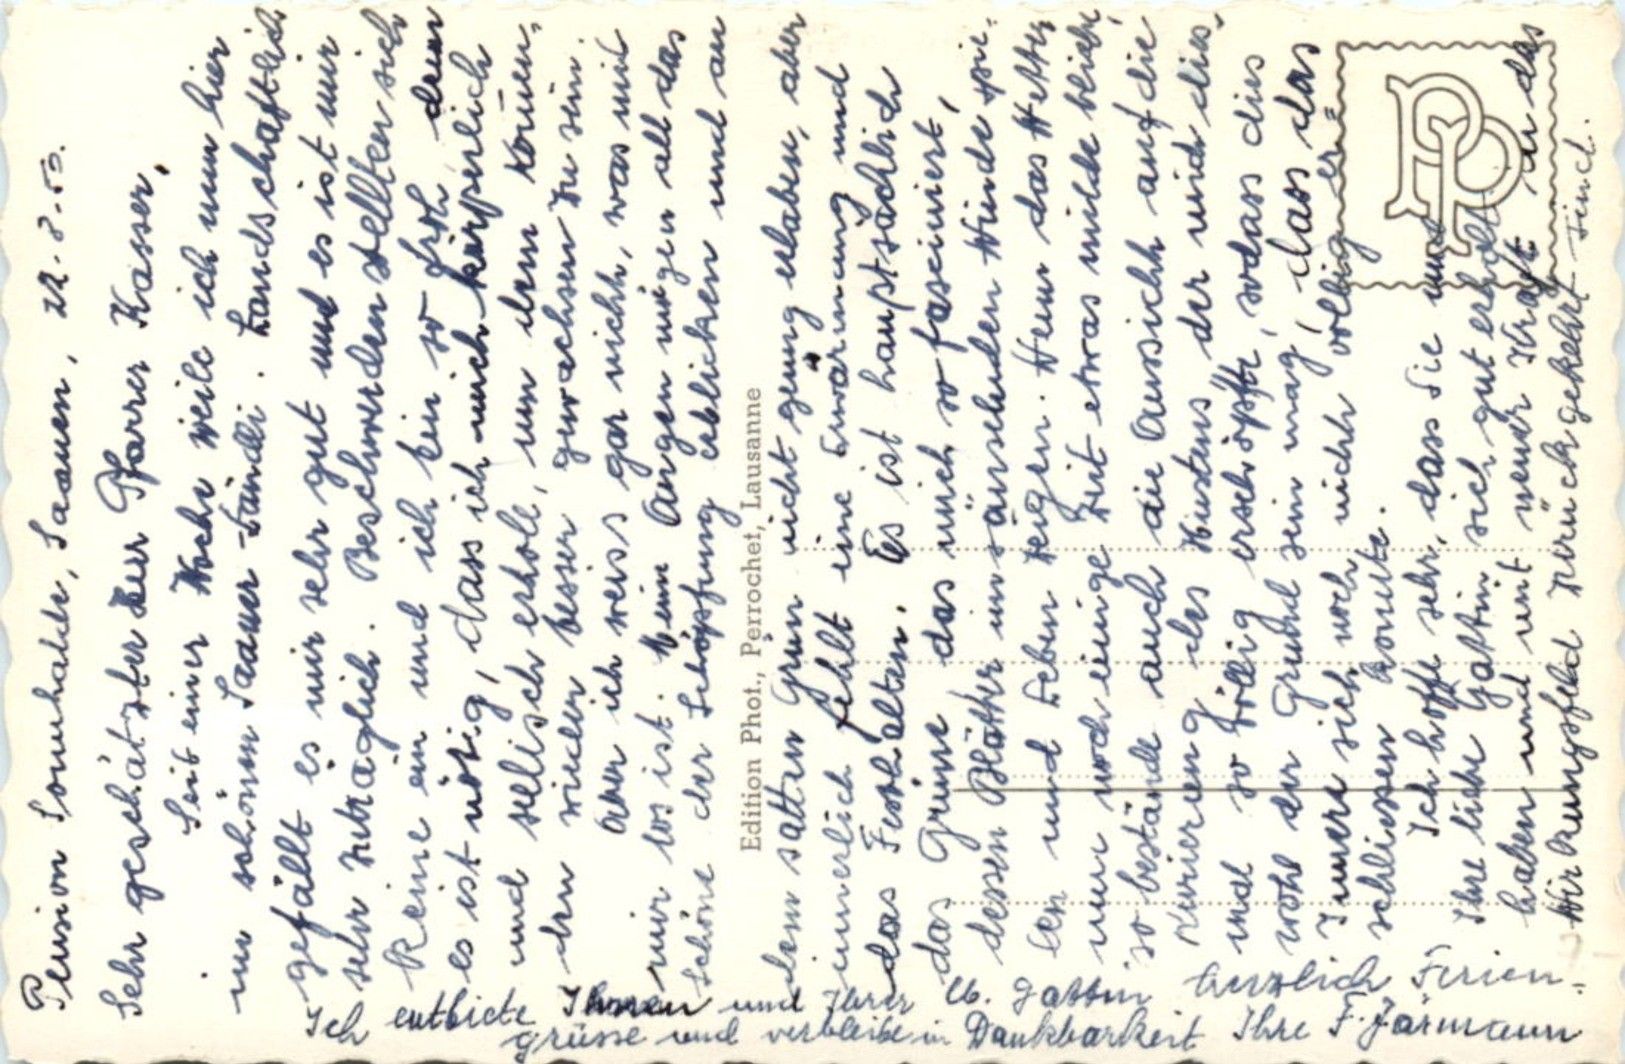 Pension Sonnhalde, Saanen, 22.8.50.
Sehr geschätzter Herr Pfarrer Kasser,
Seit einer Woche weile ich nun hier
im schönen Saaner-Ländli. Landschaftlich
gefällt es mir sehr gut und es ist mir
sehr zuträglich. Beschwerden stellten sich
keine ein und ich bin so froh, denn
es ist nötig, dass ich mich körperlich
und selisch erhole, um dem kommen-
den wieder besser gewachsen zu sein.
Aber ich weiss gar nicht, was mit
mir los ist. Mein Augen mögen all das
schöne der Schöpfung erblicken und an
dem satten Grün nicht genug erlaben, aber
innerlich fehlt eine Erwärmung und
das Festhalten. Es ist hauptsächlich
das Grüne das mich so fasciniert,
dessen Blätter im säuselnden Winde spie-
len und Leben zeigen. Wenn das Wetter
nur noch einige Zeit etwas milde bleibt
so bestände auch die Aussicht auf die
Kurierung des Hustens der mich dies-
mal so völlig erschöpfte, sodass dies
wohl der Grund sein mag, dass das
Innere sich noch nicht völlig er-
schliessen konnte.
Ich hoffe sehr, dass Sie und
Ihre liebe Gattin sich gut erholt
haben und mit neuer Kraft an das
Wirkungsfeld zurückgekehrt sind.
Ich entbiete Ihnen und Ihrer lb. Gattin herzlich Ferien-
grüsse und verbleibe in Dankbarkeit Ihre F. Järmann
Edition Phot., Perrochet, Lausanne